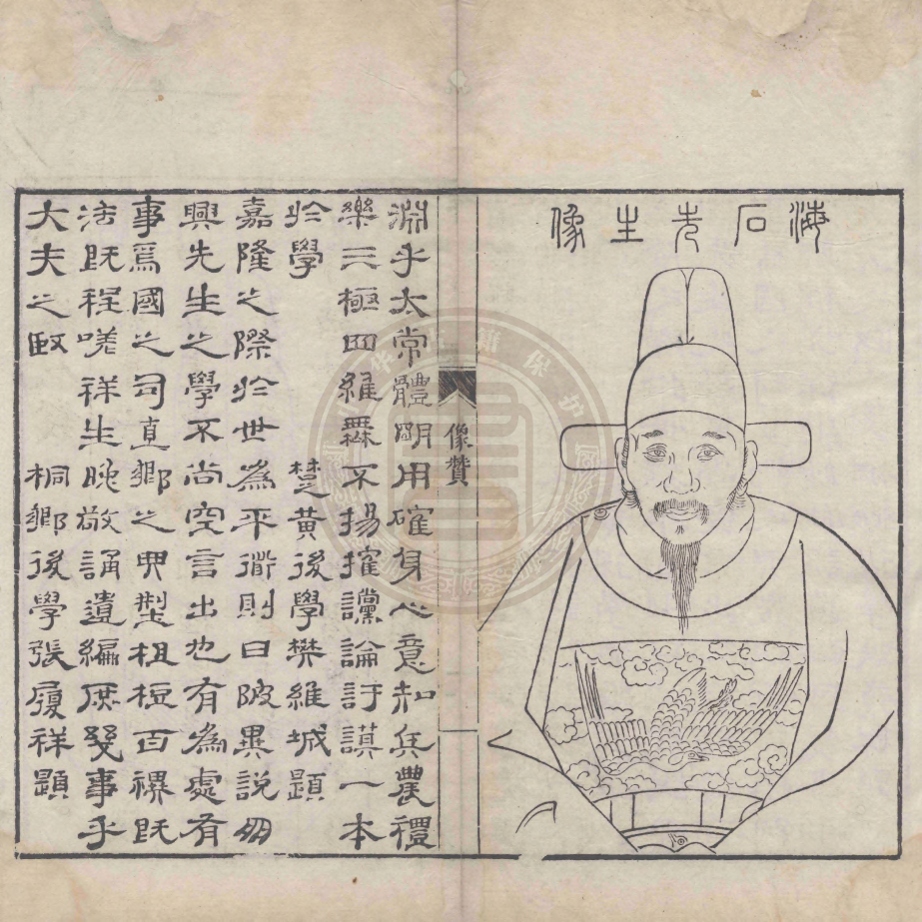 海石先生像
像贊
淵乎太常體明用確身心意知兵農禮
樂三極四維無不揚搉讜論訏謨一本
於學 楚黃後學樊維城題
嘉隆之際於世為平衜則日陂異說朋
興先生之學不尚空言出也有為處有
事爲國之司直鄉之典型俎豆百禩既
法既程嗟祥生晚敬誦遺編庶幾事乎
大夫之臤 桐鄉後學張履祥題